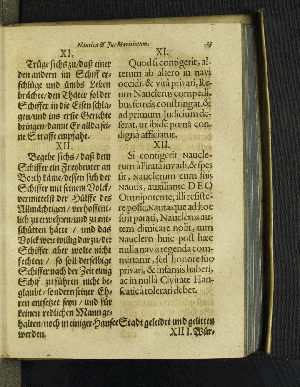 Nautica & Jus Maritimum.
XI.
Trüge sichs zu/ daß einer
den andern im Schiff er-
schlüge und ümbs Leben
brächte/ den Thäter sol der
Schiffer in die Eisen schla-
gen/ und ins erste Gerichte
bringen/ damit Er alda sei-
ne Straffe empfahe.
XII.
Begebe sichs/ daß dem
Schiffer ein Freybeuter an
Bort käme/ dessen sich der
Schiffer mit seinem Volck/
vermittelst der Hülffe des
Allmächtigen/ verhoffent-
lich zu erwehren/ und zu ent-
schütten hätte/ und das
Volck were willig dar zu/ der
Schiffer aber wolte nicht
fechten/ so soll derselbige
Schiffer nach der Zeit einig
Schif zuführen nicht be-
glaubt/ sondern seiner Eh-
ren entsetzet seyn/ und für
keinen redlichen Mann ge-
halten/ noch in einiger Hansee Stadt geleidet und gelitten
werden.
XI.
Quod si contigerit, al-
terum ab altero in navi
occidi, & vitâ privari, Re-
um Nauclerus compedi-
bus ferreis constringat, &
ad primum Judicium de-
ferat, ut ibidē pœnâ con-
dignâ afficiatur.
XII.
Si contigerit Naucle-
rum à Piratâ invadi, & spes
sit, Nauclerum cum suis
Nautis, auxiliante DEO
Omnipotente, illi resiste-
re posse, Nautæque ad hoc
sint parati, Nauclerus au-
tem dimicare nolit, tum
Nauclero huic post hæc
nulla navis regenda com-
mittatur, sed honore suo
privari, & infamis haberi,
ac in nullâ Civitate Han-
seaticâ tolerari debet.
XIII. Wür-